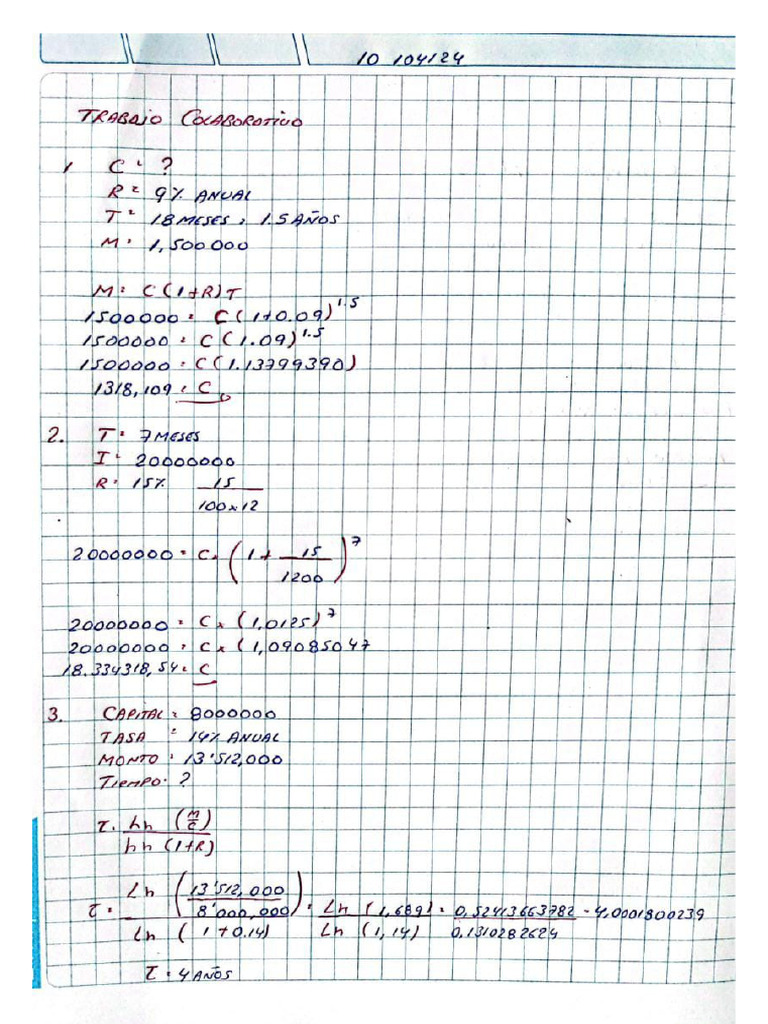 10 104124
TRABAJO COLABOROTIVO
1 C = ?
R = 9% ANUAL
T = 18 MESES = 1.5 AÑOS
M = 1,500.000
M = C (1+R) T
1500000 = C (1+0.09)^1.5
1500000 = C (1.09)^1.5
1500000 = C (1.13799390)
1318,109 = C
2. T = 7 MESES
I = 20000000
R = 15% 15
100x12
20000000 = C x (1 + 15/1200)^7
20000000 = C x (1.0125)^7
20000000 = C x (1,09085047
18.334318,54 = C
3. CAPITAL = 8000000
TASA = 14% ANUAL
MONTO = 13'512,000
TIEMPO = ?
T = Ln (M/C)
Ln (1+R)
T = Ln (13'512,000/8'000,000) = Ln (1,689) = 0,52413663782 = 4,0001800239
Ln (1+0.14) Ln (1,14) 0.1310282624
T = 4 AÑOS